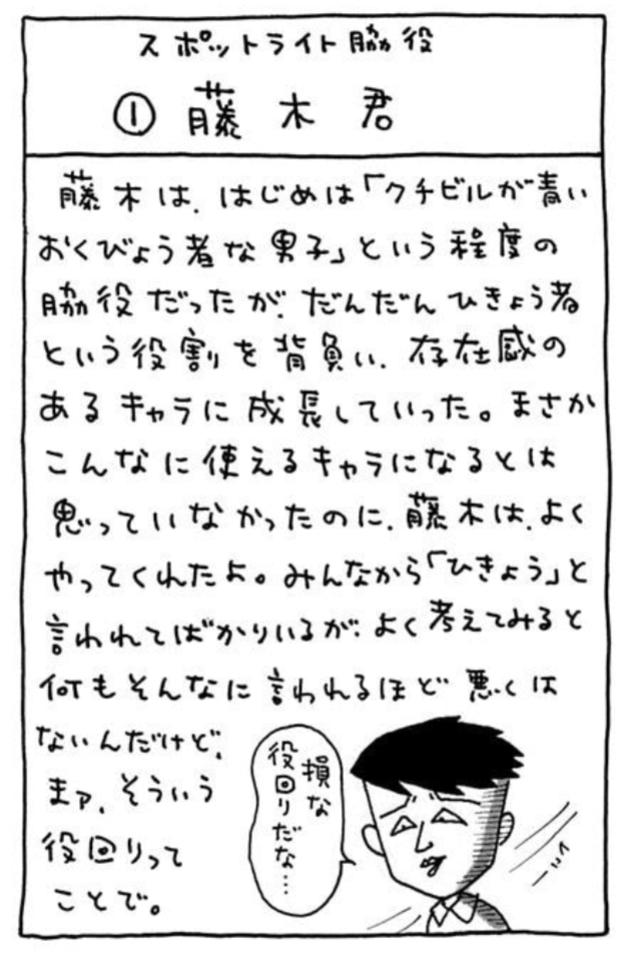 スポットライト脇役
① 藤木君
藤木は、はじめは「クチビルが青い
おくびょう者な男子」という程度の
脇役だったが、だんだんひきょう者
という役割を背負い、存在感の
あるキャラに成長していった。まさか
こんなに使えるキャラになるとは
思っていなかったのに、藤木は、よく
やってくれたよ。みんなから「ひきょう」と
言われてばかりいるが、よく考えてみると
何もそんなに言われるほど悪くは
ないんだけど、
まァ、そういう
役回りって
ことで。
損な
役回りだな…